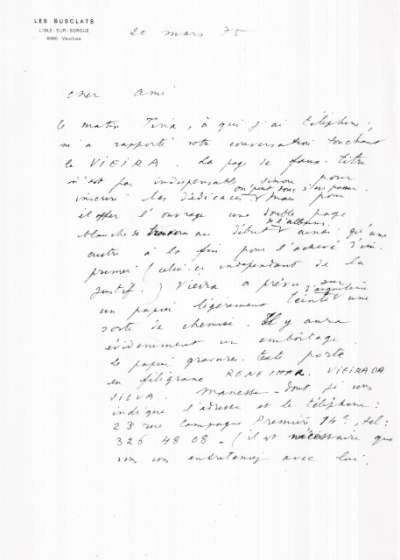 LES BUSCLATS
L'ISLE-SUR-SORGUE
Vaucluse
20 mars 75
Cher Ami
Ce matin Tina, à qui j'ai téléphoné,
m'a rapporté votre conversation touchant
le VIEIRA. La page de faux-titre
n'est pas indispensable sinon pour
inscrire les dédicaces mais pour
on peut tous s'en passer.
étoffer l'ouvrage une double page
blanche au début ainsi qu'une
autre à la fin pour l'achevé d'im-
primer (celui-ci indépendant de la
justif.) Vieira a prévu sur
un papier légèrement teinté une
sorte de chemise. Il y aura
évidemment un emboîtage.
Le papier gravure-texte porte
en filigrane RENE CHAR. VIEIRA DA
SILVA. Manessier dont je vous
indique l'adresse et le téléphone:
23 rue Campagne Première 14e, tel:
326 48 08 - (il est nécessaire que
vous vous entreteniez avec lui.